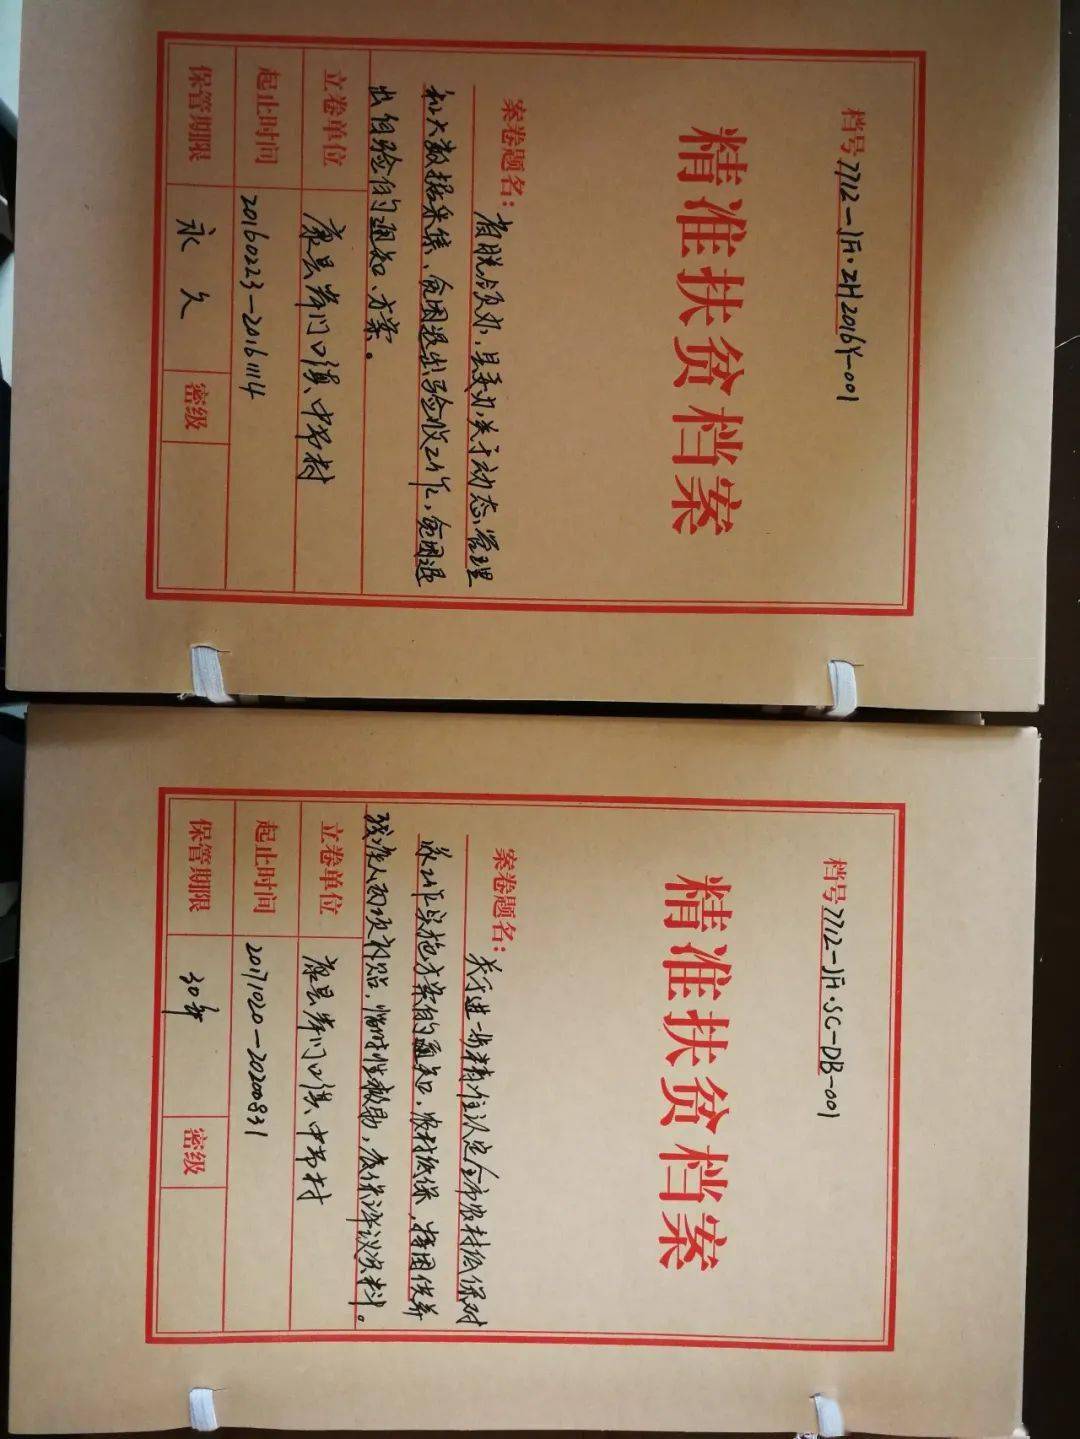 档号7712-JF·ZH2016Y-001
精准扶贫档案
案卷题名：省脱领办、县委办,关于动态管理
和大数据采集、贫困退出验收工作,贫困退
出组验收的通知、方案。
立卷单位 康县岸门口镇中节村
起止时间 20160223-20161114
保管期限 永久 密级
档号7712-JF·SC-DB-001
精准扶贫档案
案卷题名：关于进一步精准认定全市农村低保对
象工作实施方案的通知,农村低保,特困供养
残疾人两项补贴,临时性救助,低保评议资料。
立卷单位 康县岸门口镇中节村
起止时间 20171020-20200831
保管期限 30年 密级